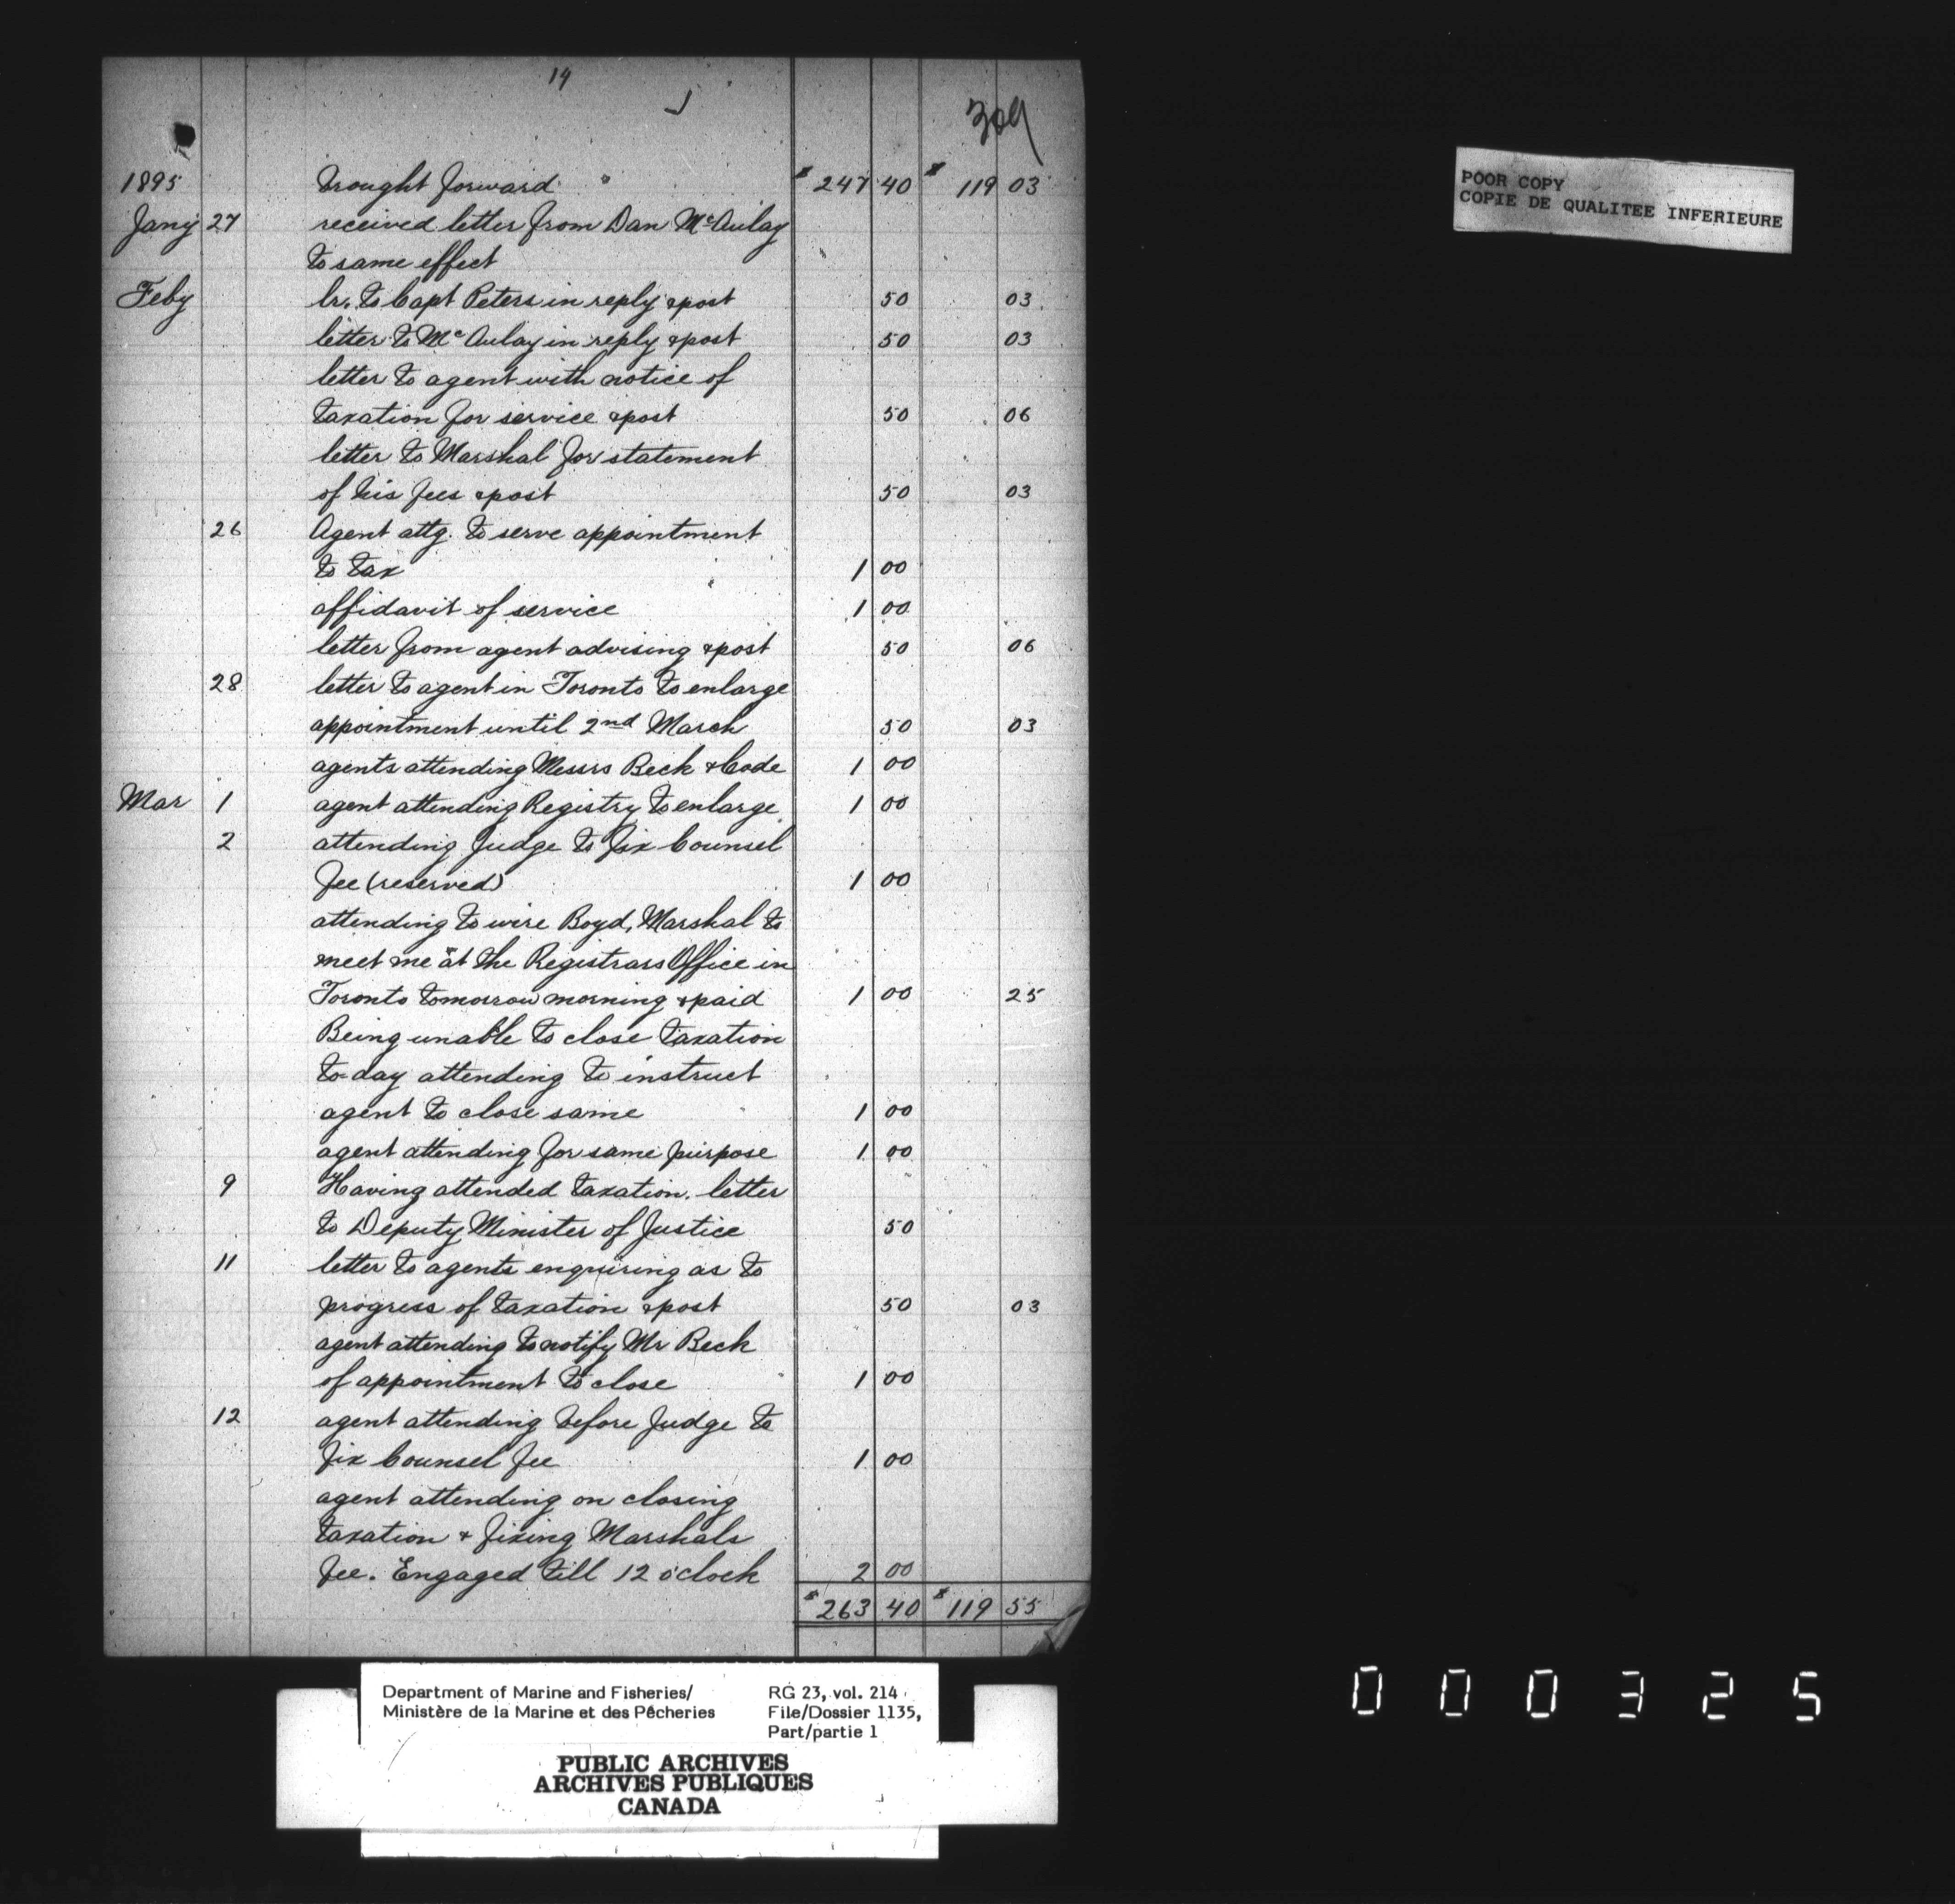 14
309
1895 brought forward $247 40 $119 03
Jany 27 received letter from Dan McAulay
to same effect
Feby lr. to Capt Peters in reply & post 50 03
letter to McAulay in reply & post 50 03
letter to agent with notice of
taxation for service & post 50 06
letter to Marshal for statement
of his fees & post 50 03
26 Agent attg. to serve appointment
to tax 1 00
affidavit of service 1 00
letter from agent advising & post 50 06
28 letter to agent in Toronto to enlarge
appointment until 2nd March 50 03
agents attending Messrs Beck & Code 1 00
Mar 1 agent attending Registry to enlarge 1 00
2 attending Judge to fix Counsel
fee (reserved) 1 00
attending to wire Boyd, Marshal to
meet me at the Registrars Office in
Toronto tomorrow morning & paid 1 00 25
Being unable to close taxation
to-day attending to instruct
agent to close same 1 00
agent attending for same purpose 1 00
9 Having attended taxation. letter
to Deputy Minister of Justice 50
11 letter to agents enquiring as to
progress of taxation & post 50 03
agent attending to notify Mr Beck
of appointment to close 1 00
12 agent attending before Judge to
fix Counsel fee 1 00
agent attending on closing
taxation & fixing Marshals
fee. Engaged till 12 o'clock 2 00
$263 40 $119 55
POOR COPY
COPIE DE QUALITEE INFERIEURE
Department of Marine and Fisheries/ RG 23, vol. 214
Ministère de la Marine et des Pêcheries File/Dossier 1135,
Part/partie 1
PUBLIC ARCHIVES
ARCHIVES PUBLIQUES
CANADA
000325